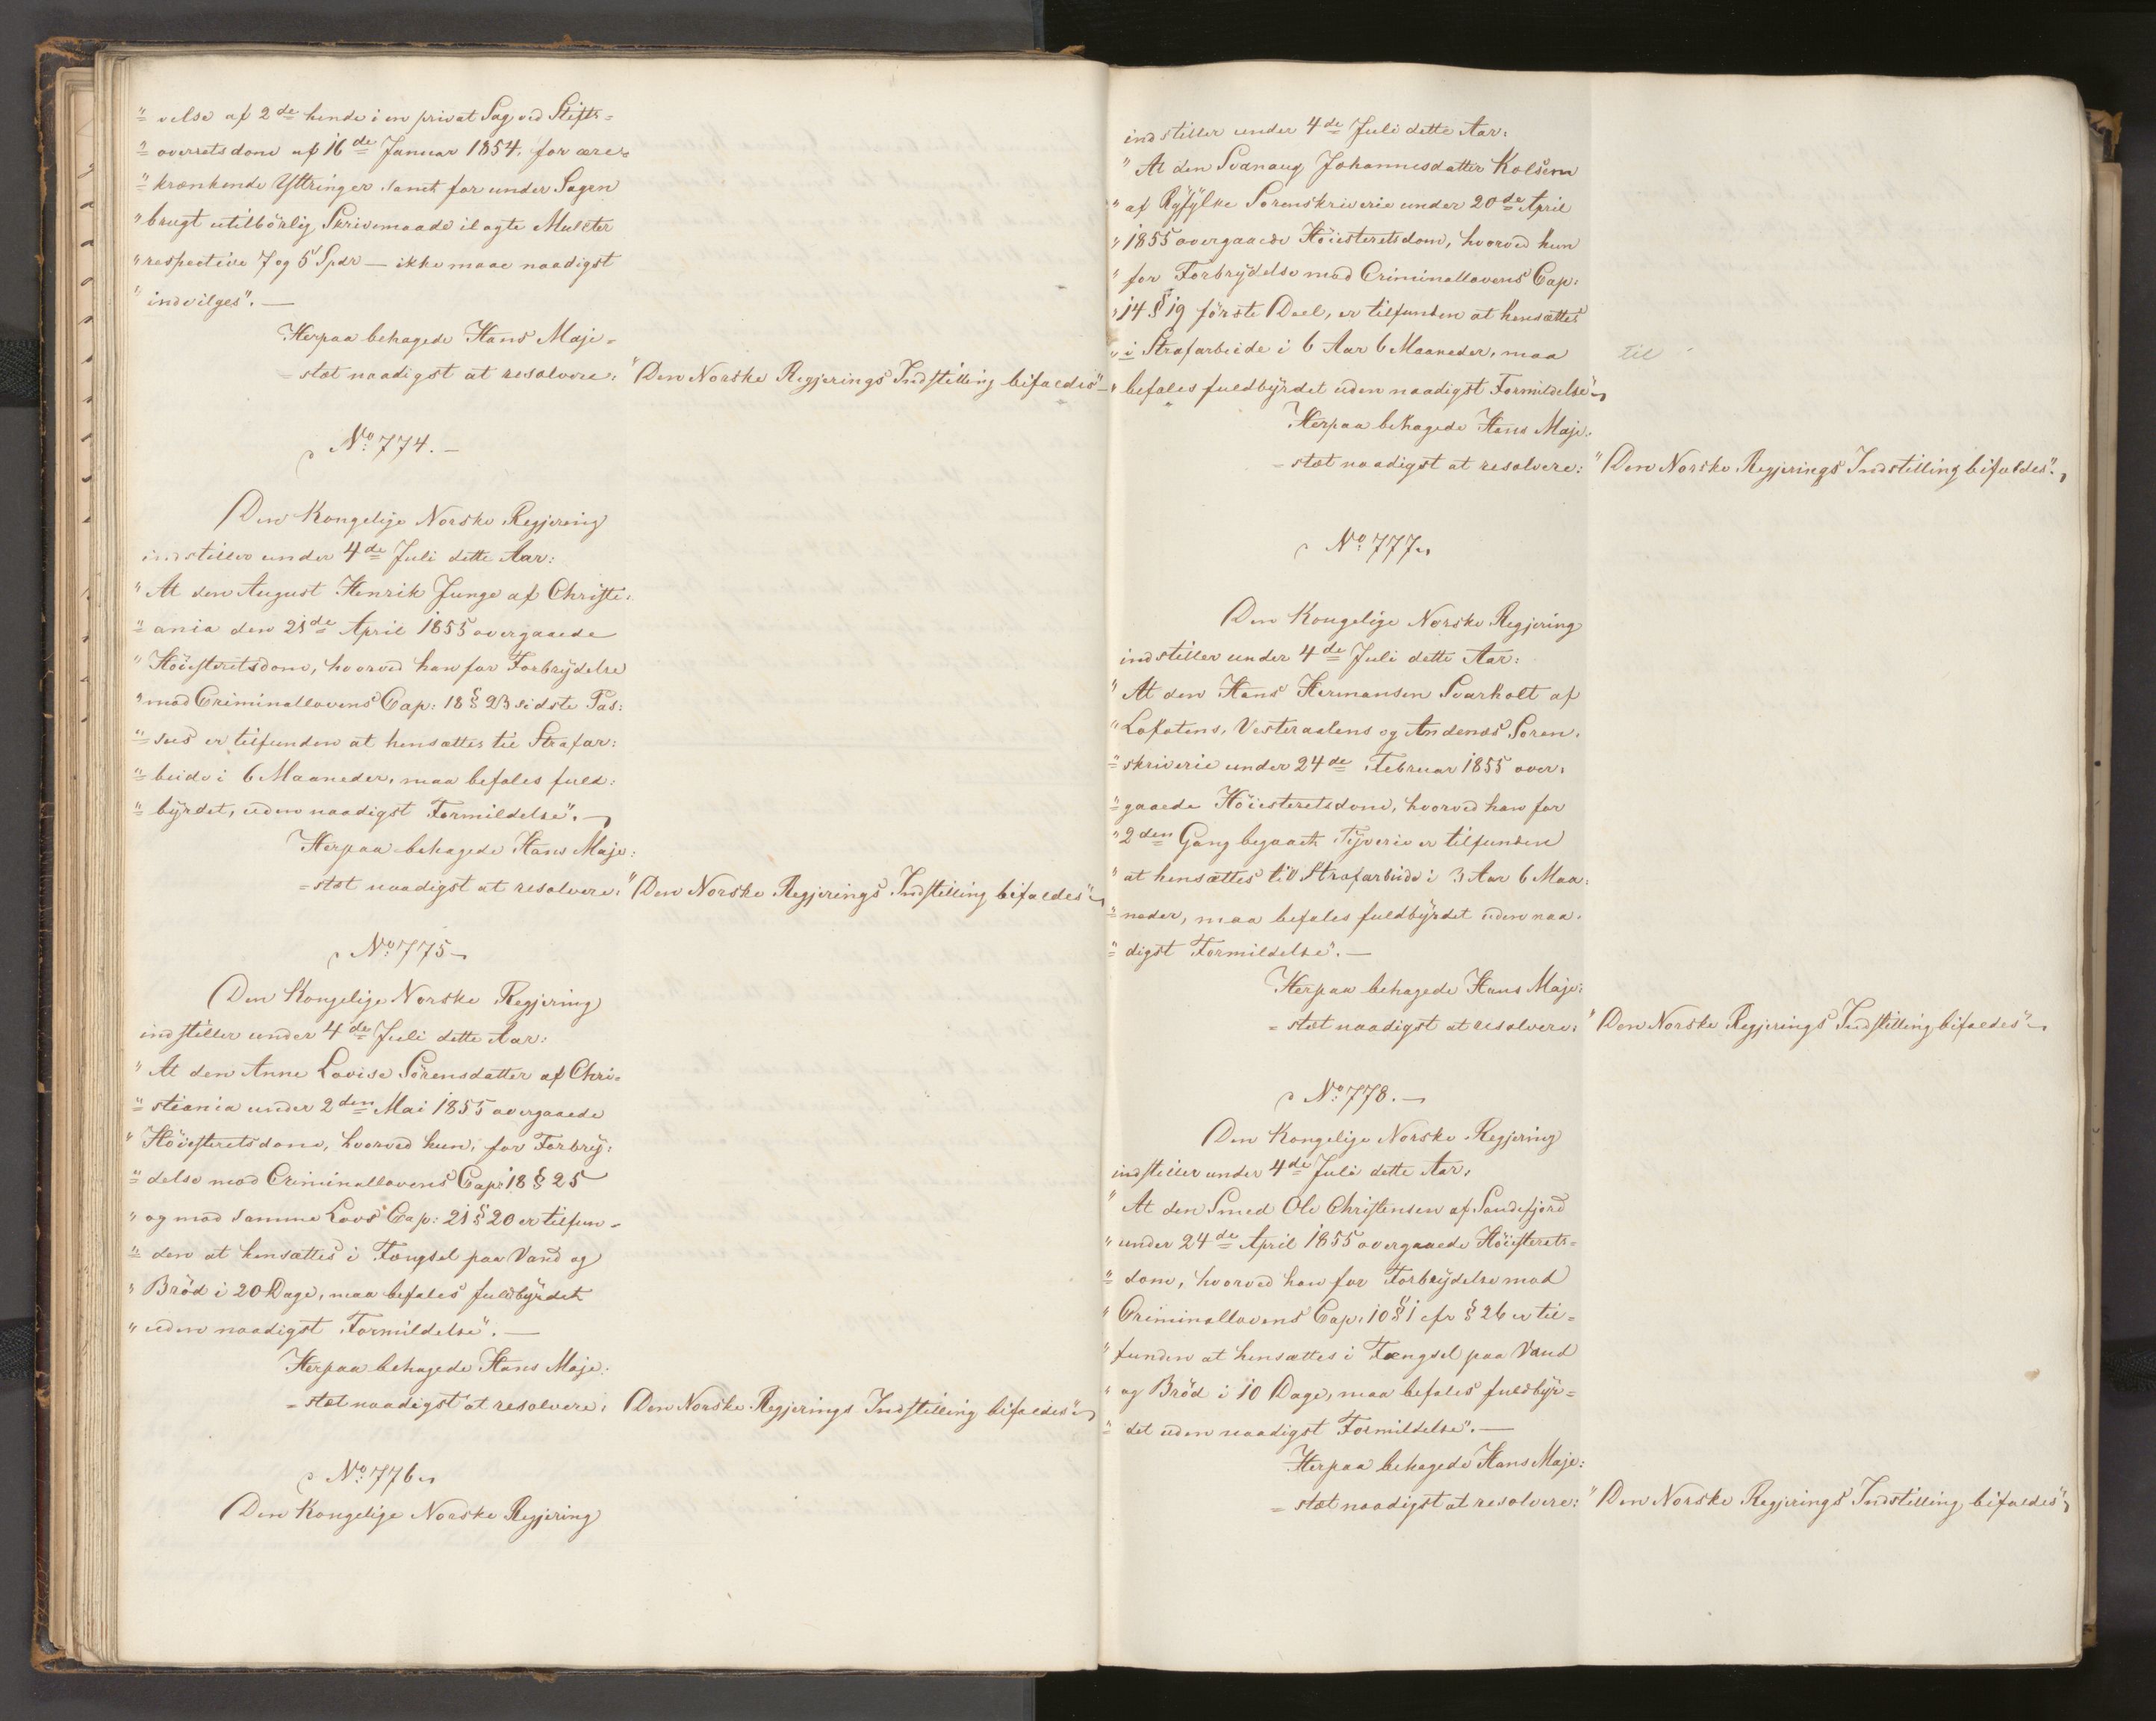 "= velse af 2de hende i en privat Sag ved Stifts=
"= overretsdom af 16de Januar 1854, for ære=
"= krænkende Yttringer samt for under Sagen
" brugt utilbörlig Skrivemaade ilagte Mulcter
" respective 7 og 5 Spdr — ikke maae naadigst
" indvilges". —
Herpaa behagede Hans Maje=
=stæt naadigst at resolvere: "Den Norske Regjerings Indstilling bifaldes"
No 774. —
Den Kongelige Norske Regjering
indstiller under 4de Juli dette Aar:
" At den August Henrik Junge af Christi:
"= ania den 21de April 1855 overgaaede
" Höiesteretsdom, hvorved han for Forbrydelse
" mod Criminallovens Cap: 18 § 23 sidste Pas:
"= sus er tilfunden at hensættes til Strafar:
"= beide i 6 Maaneder, maa befales fuld:
"= byrdet, uden naadigst Formildelse". —
Herpaa behagede Hans Maje:
=stæt naadigst at resolvere: "Den Norske Regjerings Indstilling bifaldes"
No 775
Den Kongelige Norske Regjering
indstiller under 4de Juli dette Aar:
" At den Anne Lovise Sörensdatter af Chri=
"= stiania under 2den Mai 1855 overgaaede
" Höiesteretsdom, hvorved hun, for Forbry:
"= delse mod Criminallovens Cap: 18 § 25
" og mod samme Lovs Cap: 21 § 20 er tilfun=
"= den at hensættes i Fængsel paa Vand og
" Bröd i 20 Dage, maa befales fuldbyrdet
" uden naadigst Formildelse". —
Herpaa behagede Hans Maje:
=stæt naadigst at resolvere: Den Norske Regjerings Indstilling bifaldes"
No 776
Den Kongelige Norske Regjering
indstiller under 4de Juli dette Aar:
" At den Svanaug Johannesdatter Kolsem
" af Ryfylke Sorenskriverie under 20de April
" 1855 overgaaede Höiesteretsdom, hvorved hun
" for Forbrydelse mod Criminallovens Cap:
" 14 § 19 förste Deel, er tilfunden at hensættes
" i Strafarbeide i 6 Aar 6 Maaneder, maa til
" befales fuldbyrdet uden naadigst Formildelse"
Herpaa behagede Hans Maje:
=stæt naadigst at resolvere: "Den Norske Regjerings Indstilling bifaldes".
No 777
Den Kongelige Norske Regjering
indstiller under 4de Juli dette Aar:
" At den Hans Hermansen Svarholt af
" Lofotens, Vesteraalens og Andenæs Soren:
"= skriverie under 24de Februar 1855 over:
"= gaaede Höiesteretsdom, hvorved han for
" 2den Gang begaaet Tyverie er tilfunden
" at hensættes til Strafarbeide i 3 Aar 6 Maa:
"= neder, maa befales fuldbyrdet uden naa:
"= digst Formildelse". —
Herpaa behagede Hans Maje:
=stæt naadigst at resolvere: "Den Norske Regjerings Indstilling bifaldes"
No 778. —
Den Kongelige Norske Regjering
indstiller under 4de Juli dette Aar:
" At den Smed Ole Christensen af Sandefjord
" under 24de April 1855 overgaaede Höiesterets=
"= dom, hvorved han for Forbrydelse mod
" Criminallovens Cap: 10 § 1 cfr § 26 er til=
" funden at hensættes i Fængsel paa Vand
" og Bröd i 10 Dage, maa befales fuldbyr=
"= det uden naadigst Formildelse". —
Herpaa behagede Hans Maje:
=stæt naadigst at resolvere: "Den Norske Regjerings Indstilling bifaldes"